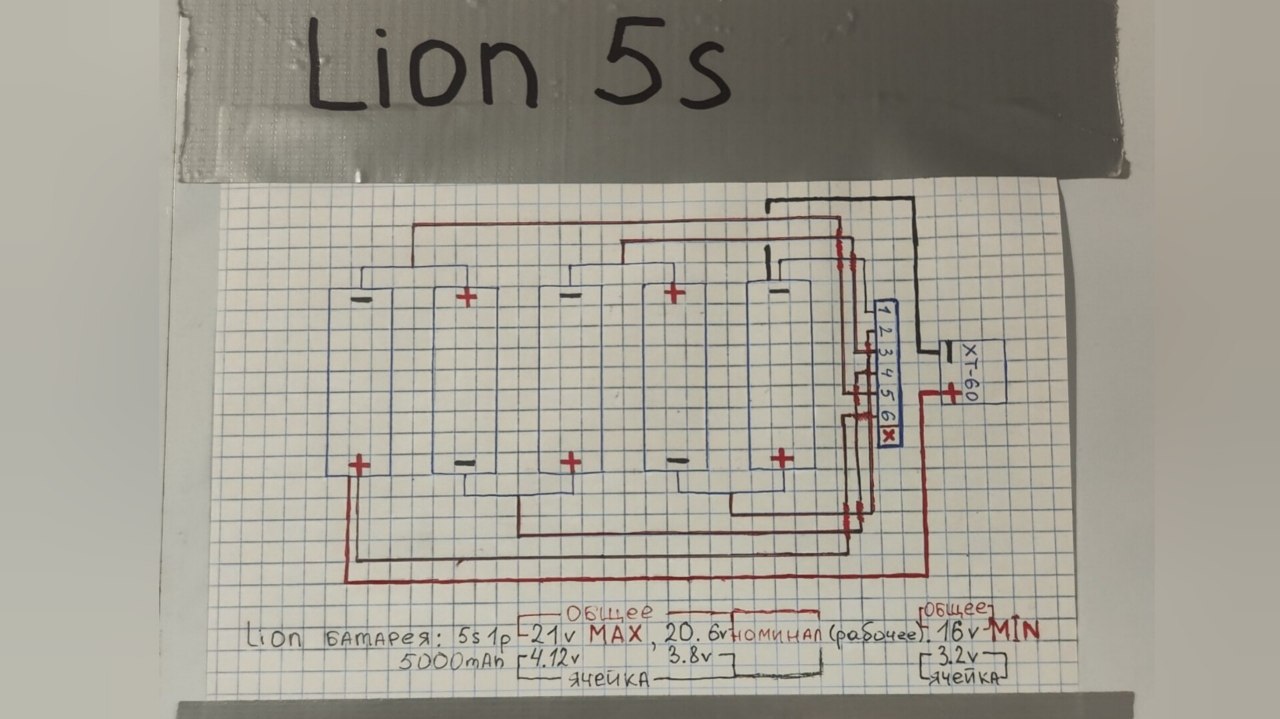 Lion 5s
− + − + −
+ − + − +
1
2
3
4
5
6
X
− +
XT-60
ОБЩЕЕ ОБЩЕЕ
Lion БАТАРЕЯ: 5s 1p 21v MAX, 20.6v НОМИНАЛ (рабочее). 16v MIN
5000mAh 4.12v 3.8v 3.2v
ЯЧЕЙКА ЯЧЕЙКА